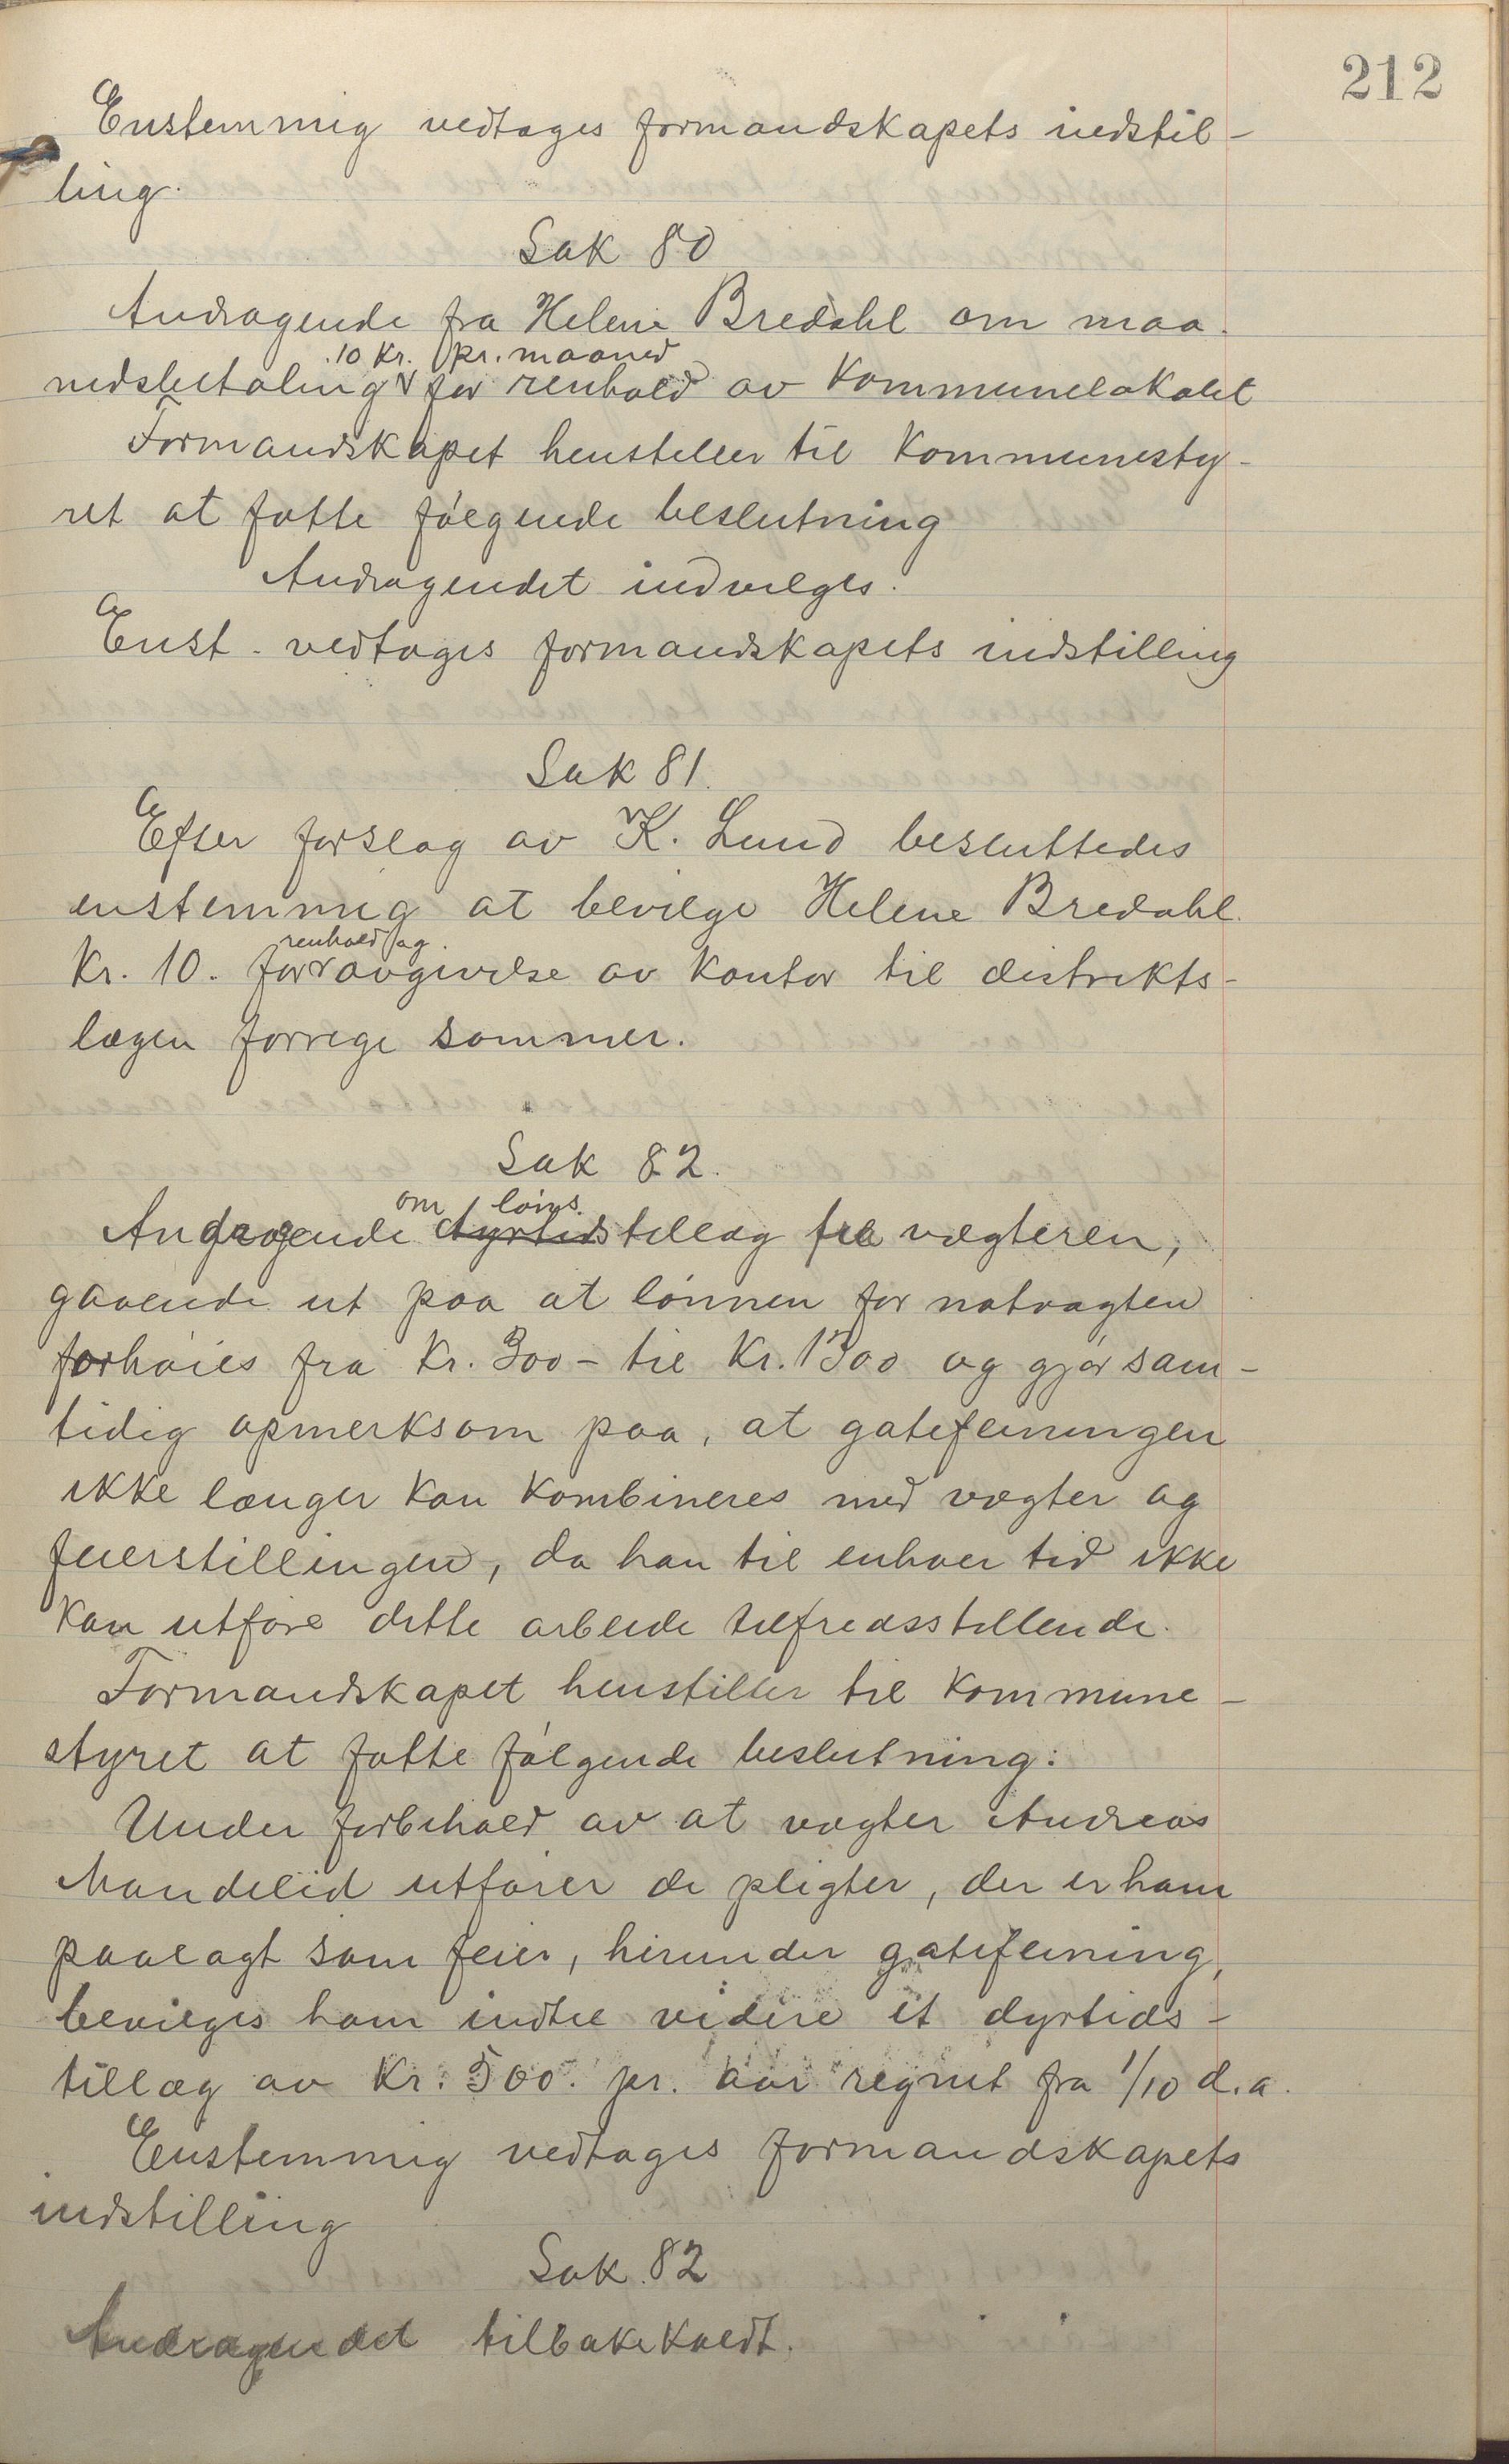 212
Enstemmig vedtages formandskapets indstil-
ling.
Sak 80
Andragende fra Helene Bredahl om maa-
10 Kr. pr. maaned
nedsbetaling for renhold av Kommunelokalet
Formandskapet henstiller til Kommunesty-
ret at fatte følgende beslutning
Andragendet indvilges.
Enst. vedtages formandskapets indstilling
Sak 81.
Efter forslag av K. Lund besluttedes
enstemmig at bevilge Helene Bredahl
renhold og
Kr. 10. for avgivelse av Kontor til distrikts-
lægen forrige sommer.
Sak 82.
om løns.
Andragende dyrtidstillæg fra vægteren,
gaaende ut paa at lønnen for natvagten
forhøies fra Kr. 300 - til Kr. 1300 og gjør sam-
tidig opmerksom paa, at gatefeiningen
ikke længer kan kombineres med vægter og
feierstillingen, da han til enhver tid ikke
kan utføre dette arbeide tilfredsstillende.
Formandskapet henstiller til Kommune-
styret at fatte følgende beslutning:
Under forbehold av at vægter Andreas
Mandelid utfører de pligter, der er ham
paalagt som feier, herunder gatefeining,
bevilges ham indtil videre et dyrtids-
tillæg av Kr. 500. pr. aar regnet fra 1/10 d.a.
Enstemmig vedtages formandskapets
indstilling
Sak. 82
Andragendet tilbakekaldt.